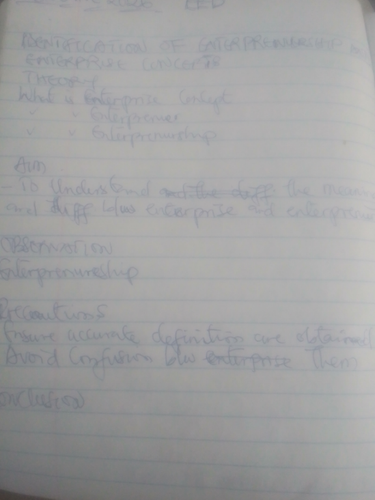 LED
IDENTIFICATION OF ENTERPRENEURSHIP &
ENTERPRISE CONCEPTS
THEORY
What is Enterprise Concept
" " Enterpreneur
" " Enterpreneurship
Aim
- To understand the meaning
and diff b/w enterprise and enterprene
OBSERVATION
Enterprenureship
Precautions
Ensure accurate definition are obtained
Avoid confusion b/w enterprise Them
onclusion